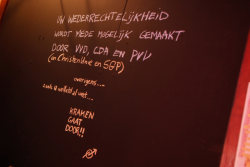 UW WEDERRECHTELIJKHEID
WORDT MEDE MOGELIJK GEMAAKT
DOOR VVD, CDA EN PVV
(en ChristenUnie en SGP)
overigens...
zoals u wellicht al weet...
KRAKEN
GAAT
DOOR!!